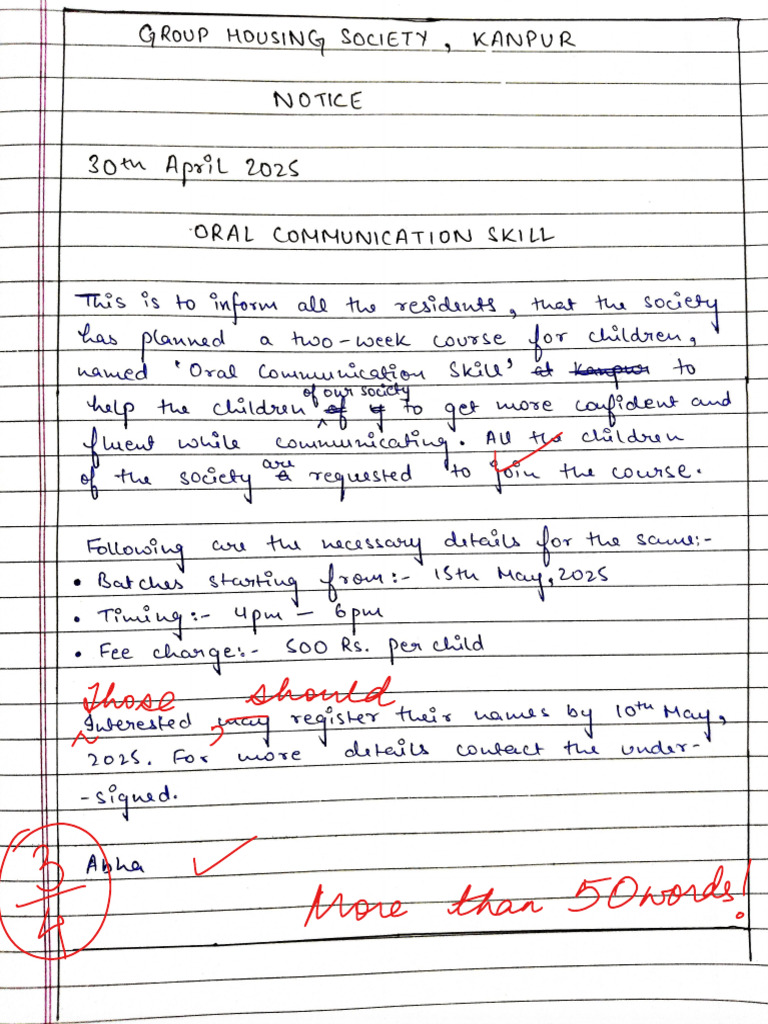 GROUP HOUSING SOCIETY, KANPUR
NOTICE
30th April 2025
ORAL COMMUNICATION SKILL
This is to inform all the residents, that the society
has planned a two-week course for children,
named 'Oral Communication Skill' at Kanpur to
of our society
help the children of to get more confident and
fluent while communicating. All the children
are
of the society requested to join the course.
Following are the necessary details for the same:-
• Batches starting from:- 15th May, 2025
• Timing:- 4pm – 6pm
• Fee charge:- 500 Rs. per child
Those should
Interested may register their names by 10th May,
2025. For more details contact the under-
-signed.
Abha
3/4
More than 50 words!